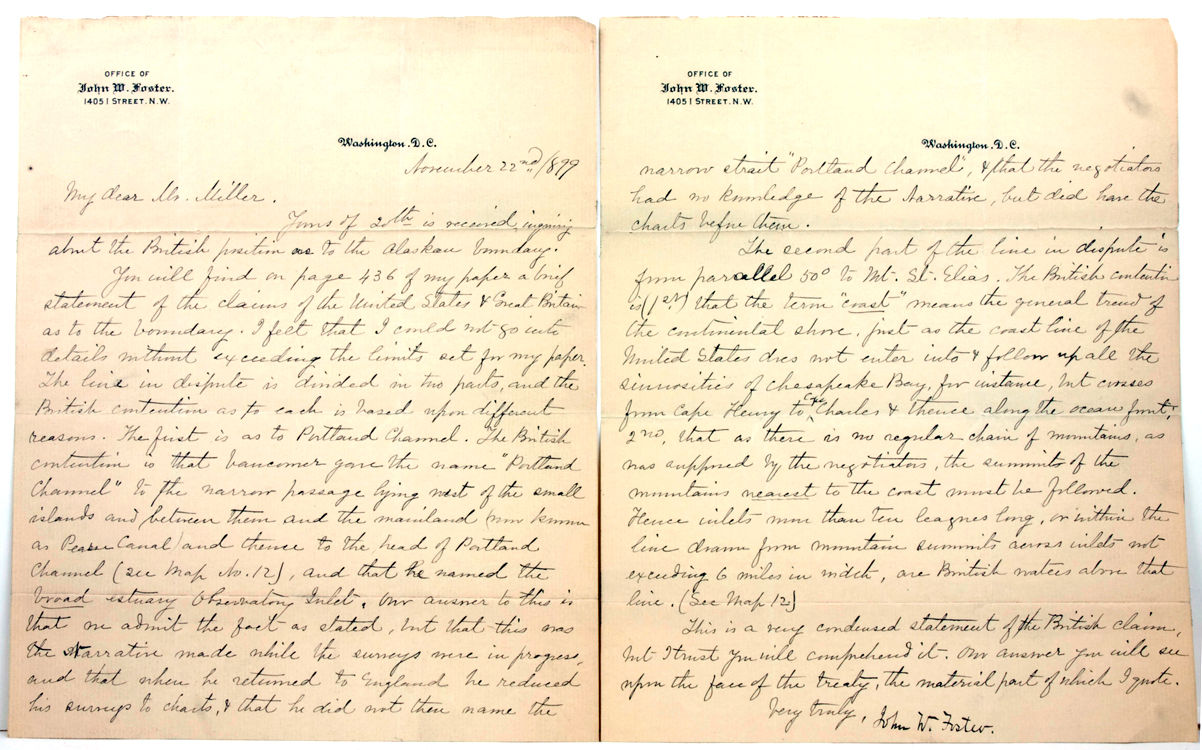 OFFICE OF
John W. Foster.
1405 I STREET. N.W.
Washington. D.C.
November 22nd/899
My dear Mr. Miller.
Yours of 20th is received, inquiring
about the British position as to the Alaskan boundary.
You will find on page 436 of my paper a brief
statement of the claims of the United States & Great Britain
as to the boundary. I felt that I could not go into
details without exceeding the limits set for my paper.
The line in dispute is divided in two parts, and the
British contention as to each is based upon different
reasons. The first is as to Portland Channel. The British
contention is that Vancouver gave the name "Portland
Channel" to the narrow passage lying west of the small
islands and between them and the mainland (now known
as Pearse Canal) and thence to the head of Portland
Channel (see Map No. 12), and that he named the
broad estuary Observatory Inlet. Our answer to this is
that we admit the fact as stated, but that this was
the Narrative made while the surveys were in progress,
and that when he returned to England he reduced
his surveys to charts, & that he did not then name the
OFFICE OF
John W. Foster.
1405 I STREET. N.W.
Washington. D.C.
narrow strait "Portland Channel", & that the negotiators
had no knowledge of the Narrative, but did have the
charts before them.
The second part of the line in dispute is
from parallel 50° to Mt. St. Elias. The British contention
is (1st) that the term "coast" means the general trend of
the continental shore, just as the coast line of the
United States does not enter into & follow up all the
sinuosities of Chesapeake Bay, for instance, but crosses
from Cape Henry to Cape Charles & thence along the ocean front;
2nd, that as there is no regular chain of mountains, as
was supposed by the negotiators, the summits of the
mountains nearest to the coast must be followed.
Hence inlets more than ten leagues long, or within the
line drawn from mountain summits across inlets not
exceeding 6 miles in width, are British waters above that
line. (See Map 12)
This is a very condensed statement of the British claim,
but I trust you will comprehend it. Our answer you will see
upon the face of the treaty, the material part of which I quote.
Very truly,
John W. Foster.